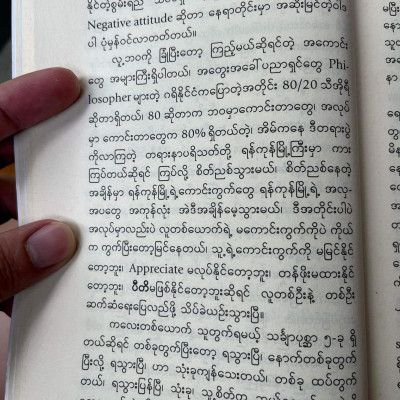 နိုင်တဲ့စွမ်းရည်
Negative attitude ဆိုတာ နေရာတိုင်းမှာ အဆိုးမြင်တဲ့ဝါဒ
ပါ ပုံမှန်ဝင်လာတတ်တယ်။
လူ့ဘဝကို ခြုံပြီးတော့ ကြည့်မယ်ဆိုရင်တဲ့ အကောင်း
တွေ အများကြီးရှိပါတယ်၊ အတွေးအခေါ်ပညာရှင်တွေ Phi-
losopher များတဲ့ ဂရိနိုင်ငံကပြောတဲ့အတိုင်း 80/20 သီအိုရီ
ဆိုတာရှိတယ်၊ 80 ဆိုတာက ဘဝမှာကောင်းတာတွေ၊ အလုပ်
မှာ ကောင်းတာတွေက 80% ရှိတယ်တဲ့၊ အိမ်ကနေ ဒီတရားပွဲ
ကိုလာကြတဲ့ တရားနာပရိသတ်တို့ ရန်ကုန်မြို့ကြီးမှာ ကား
ကြပ်တယ်ဆိုရင် ကြပ်လို့ စိတ်ညစ်သွားမယ်၊ စိတ်ညစ်နေတဲ့
အချိန်မှာ ရန်ကုန်မြို့ရဲ့ကောင်းကွက်တွေ ရန်ကုန်မြို့ရဲ့ အလှ-
အပတွေ အကုန်လုံး အဲဒီအချိန်မေ့သွားမယ်၊ ဒီအတိုင်းပါပဲ
အလုပ်မှာလည်းပဲ လူတစ်ယောက်ရဲ့ မကောင်းကွက်ကိုပဲ ကိုယ်
က ကွက်ပြီးတော့မြင်နေတယ်၊ သူ့ရဲ့ကောင်းကွက်ကို မမြင်နိုင်
တော့ဘူး၊ Appreciate မလုပ်နိုင်တော့ဘူး၊ တန်ဖိုးမထားနိုင်
တော့ဘူး၊ ပီတိမဖြစ်နိုင်တော့ဘူးဆိုရင် လူတစ်ဦးနဲ့ တစ်ဦး
ဆက်ဆံရေးပြေလည်ဖို့ သိပ်ခဲယဉ်းသွားပြီ။
ကလေးတစ်ယောက် သူတွက်ရမယ့် သင်္ချာပုစ္ဆာ ၅-ခု ရှိ
တယ်ဆိုရင် တစ်ခုတွက်ပြီးတော့ ရသွားပြီ၊ နောက်တစ်ခုတွက်
ပြီးလို့ ရသွားပြီ၊ ဟာ သုံးခုကျန်သေးတယ်၊ တစ်ခု ထပ်တွက်
တယ်၊ ရသွားပြန်ပြီ၊ သုံးခု၊ သူ့စိတ်က